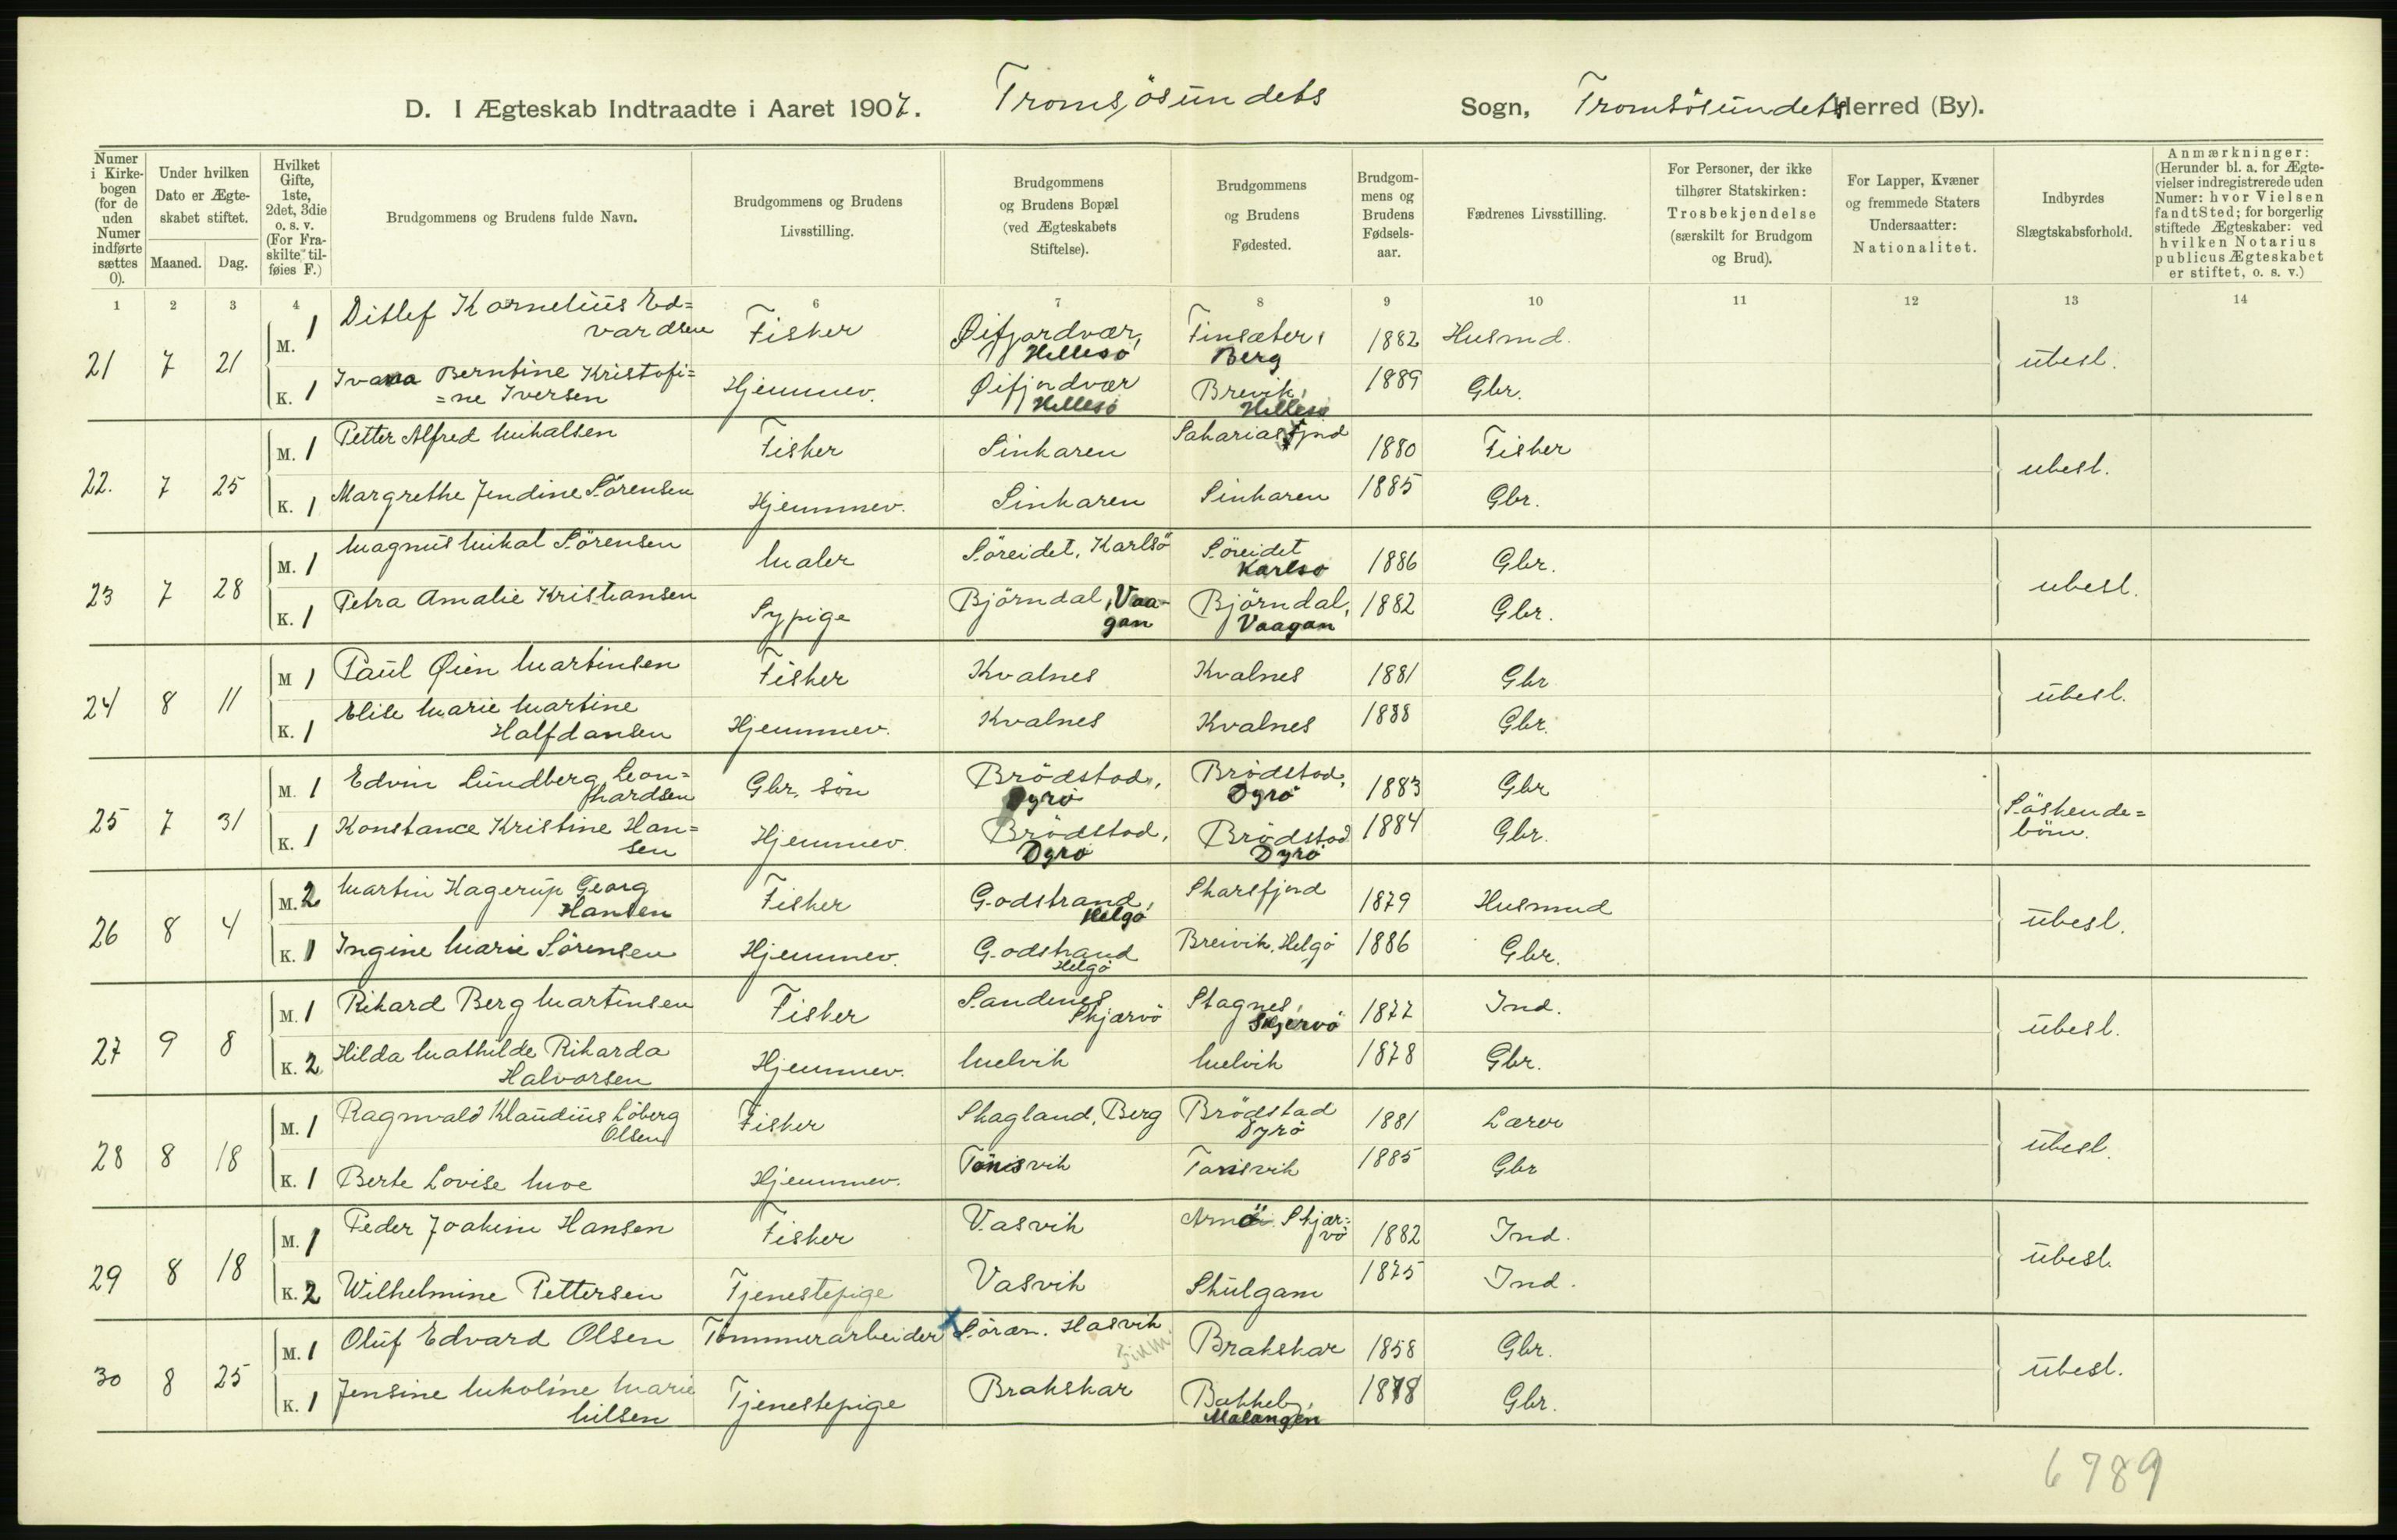 D. I Ægteskab Indtraadte i Aaret 1907. Tromsösundets Sogn, Tromsösundets Herred (By).
Numer i Kirkebogen (for de uden Numer indførte sættes 0).
Under hvilken Dato er Ægteskabet stiftet.
Maaned. Dag.
Hvilket Gifte, 1ste, 2det, 3die o. s. v. (For Fraskilte tilføies F.)
Brudgommens og Brudens fulde Navn.
Brudgommens og Brudens Livsstilling.
Brudgommens og Brudens Bopæl (ved Ægteskabets Stiftelse).
Brudgommens og Brudens Fødested.
Brudgommens og Brudens Fødselsaar.
Fædrenes Livsstilling.
For Personer, der ikke tilhører Statskirken: Trosbekjendelse (særskilt for Brudgom og Brud).
For Lapper, Kvæner og fremmede Staters Undersaatter: Nationalitet.
Indbyrdes Slægtskabsforhold.
Anmærkninger: (Herunder bl. a. for Ægtevielser indregistrerede uden Numer: hvor Vielsen fandt Sted; for borgerlig stiftede Ægteskaber: ved hvilken Notarius publicus Ægteskabet er stiftet, o. s. v.)
1 2 3 4 6 7 8 9 10 11 12 13 14
21 7 21 M. 1 Ditlef Kornelius Ed=vardsen Fisker Øifjordvær, Hillesö Finsæter, Berg 1882 Husmd. ubesl.
K. 1 Ivana Berntine Kristofi==ne Iversen Hjemmev. Øifjordvær Hillesö Brevik, Hillesö 1889 Gbr.
22. 7 25 M. 1 Petter Alfred Mikalsen Fisker Sinkaren Sakariasfjord 1880 Fisker ubesl.
K. 1 Margrethe Jendine Sörensen Hjemmev. Sinkaren Sinkaren 1885 Gbr.
23 7 28 M. 1 Magnus Mikal Sörensen Maler Söreidet, Karlsö Söreidet Karlsö 1886 Gbr. ubesl.
K. 1 Petra Amalie Kristiansen Sypige Björndal, Vaagan Björndal, Vaagan 1882 Gbr.
24 8 11 M 1 Paul Øien Martinsen Fisker Kvalnes Kvalnes 1881 Gbr ubesl.
K. 1 Elise Marie Martine Halfdansen Hjemmev. Kvalnes Kvalnes 1888 Gbr.
25 7 31 M. 1 Edvin Lundberg Leon=hardsen Gbr. sön Brödstad, Dyrö Brödstad, Dyrö 1883 Gbr Söskende=börn.
K. 1 Konstance Kristine Han=sen Hjemmev. Brödstad, Dyrö Brödstad Dyrö 1884 Gbr.
26 8 4 M. 2 Martin Hagerup Georg Hansen Fisker Godstrand, Helgö Skarsfjord 1879 Husmnd ubesl.
K. 1 Ingine Marie Sörensen Hjemmev. Godstrand Helgö Breivik, Helgö 1886 Gbr.
27 9 8 M. 1 Rikard Berg Martinsen Fisker Sandnes Skjærvö Stagnes, Skjervö 1877 Ind. ubesl.
K. 2 Hilda Mathilde Rikarda Halvorsen Hjemmev. Melvik Melvik 1878 Gbr.
28 8 18 M. 1 Ragnvald Klaudius Löberg Olsen Fisker Skagland, Berg Brödstad Dyrö 1881 Lærer ubesl.
K. 1 Berte Lovise Moe Hjemmev. Tönisvik Tonisvik 1885 Gbr
29 8 18 M. 1 Peder Joakim Hansen Fisker Vasvik Arnö Skjær=vö 1882 Ind. ubesl.
K. 2 Wilhelmine Pettersen Tjenestepige Vasvik Skulgam 1875 Ind.
30 8 25 M. 1 Oluf Edvard Olsen Tømmerarbeider x Söræn. Hasvik Finm. Brakskar 1858 Gbr. ubesl.
K. 1 Jensine Nikoline Marie Nilsen Tjenestepige Brakskar Bakkeby, Malangen 1878 Gbr.
6789